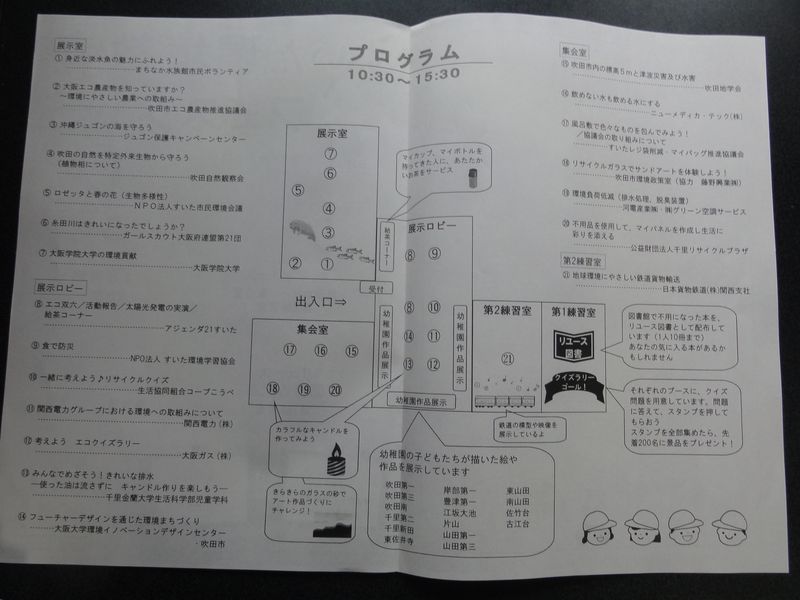 プログラム
10:30～15:30
展示室
① 身近な淡水魚の魅力にふれよう！
まちなか水族館市民ボランティア
② 大阪エコ農産物を知っていますか？
～環境にやさしい農業への取組み～
吹田市エコ農産物推進協議会
③ 沖縄ジュゴンの海を守ろう
ジュゴン保護キャンペーンセンター
④ 吹田の自然を特定外来生物から守ろう
（植物相について）
吹田自然観察会
⑤ ロゼッタと春の花（生物多様性）
NPO法人すいた市民環境会議
⑥ 糸田川はきれいになったでしょうか？
ガールスカウト大阪府連盟第21団
⑦ 大阪学院大学の環境貢献
大阪学院大学
展示ロビー
⑧ エコ双六／活動報告／太陽光発電の実演／
給茶コーナー
アジェンダ21すいた
⑨ 食で防災
NPO法人 すいた環境学習協会
⑩ 一緒に考えよう♪リサイクルクイズ
生活協同組合コープこうべ
⑪ 関西電力グループにおける環境への取組みについて
関西電力（株）
⑫ 考えよう エコクイズラリー
大阪ガス（株）
⑬ みんなでめざそう！きれいな排水
―使った油は流さずに キャンドル作りを楽しもう―
千里金蘭大学生活科学部児童学科
⑭ フューチャーデザインを通じた環境まちづくり
大阪大学環境イノベーションデザインセンター
・吹田市
展示室
⑦
⑥
⑤
④
③
② ①
マイカップ、マイボトルを
持ってきた人に、あたたか
いお茶をサービス
給茶コーナー
受付
出入口⇒
展示ロビー
⑧ ⑨
⑧ ⑩
⑭ ⑪
⑬ ⑫
幼稚園作品展示
幼稚園作品展示
幼稚園作品展示
集会室
⑰ ⑯ ⑮
⑱ ⑲ ⑳
第2練習室
㉑
第1練習室
リユース
図書
クイズラリー
ゴール！
カラフルなキャンドル
を作ってみよう
きらきらのガラスの砂で
アート作品づくりに
チャレンジ！
鉄道の模型や映像を
展示しているよ
幼稚園の子どもたちが描いた絵や
作品を展示しています
吹田第一 岸部第一 東山田
吹田第三 豊津第一 南山田
吹田南 江坂大池 佐竹台
千里第二 片山 古江台
千里新田 山田第一
東佐井寺 山田第三
集会室
⑮ 吹田市内の標高５ｍと津波災害及び水害
吹田地学会
⑯ 飲めない水も飲める水にする
ニューメディカ・テック（株）
⑰ 風呂敷で色々なものを包んでみよう！
／協議会の取り組みについて
すいたレジ袋削減・マイバッグ推進協議会
⑱ リサイクルガラスでサンドアートを体験しよう！
吹田市環境政策室（協力 藤野興業㈱）
⑲ 環境負荷低減（排水処理、脱臭装置）
河電産業㈱・㈱グリーン空調サービス
⑳ 不用品を使用して、マイパネルを作成し生活に
彩りを添える
公益財団法人千里リサイクルプラザ
第2練習室
㉑ 地球環境にやさしい鉄道貨物輸送
日本貨物鉄道（株）関西支社
図書館で不用になった本を、
リユース図書として配布して
います（1人10冊まで）
あなたの気に入る本があるか
もしれません
それぞれのブースに、クイズ
問題を用意しています。問題
に答えて、スタンプを押して
もらおう
スタンプを全部集めたら、先
着200名に景品をプレゼント！